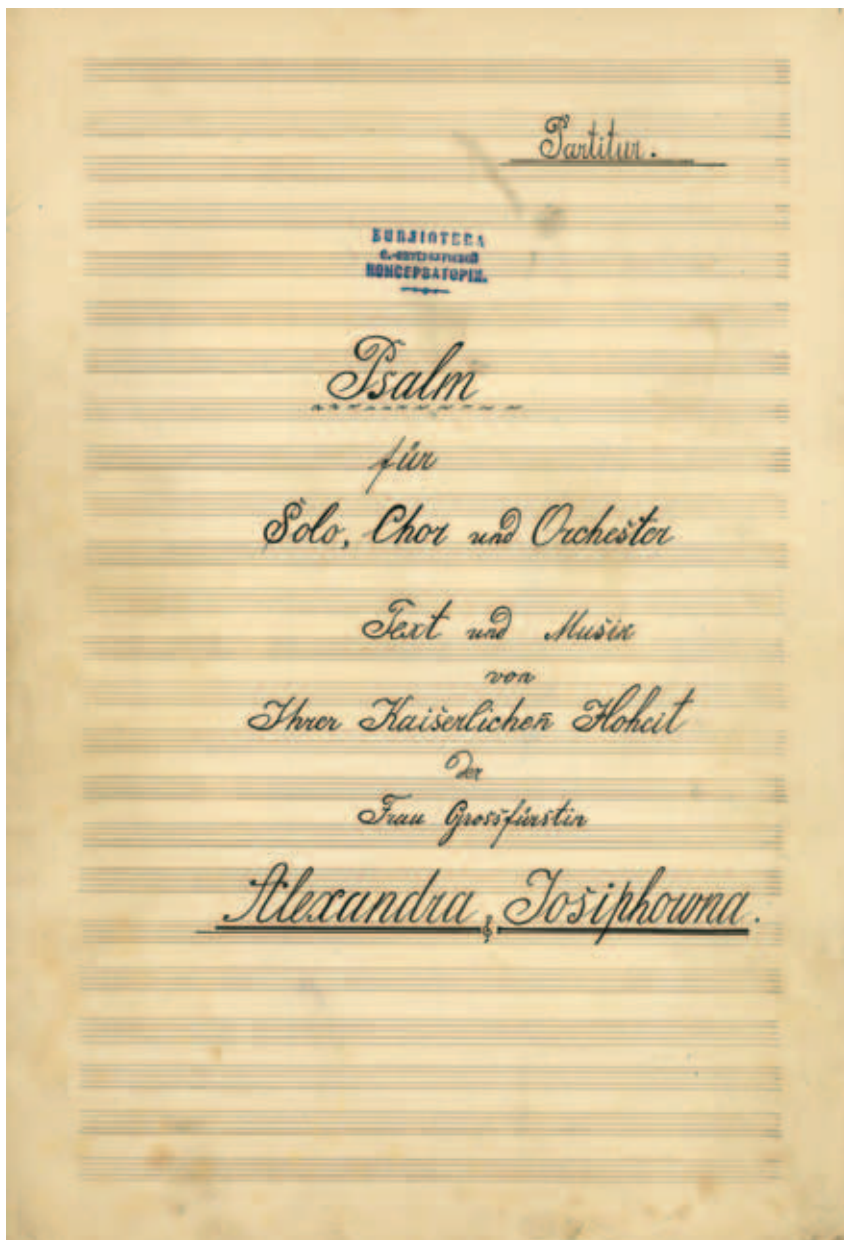 Partitur.
БИБЛIОТЕКА
КОНСЕРВАТОРIИ.
Psalm
für
Solo, Chor und Orchester
Text und Musik
von
Ihrer Kaiserlichen Hoheit
der
Frau Grossfürstin
Alexandra Josiphowna.